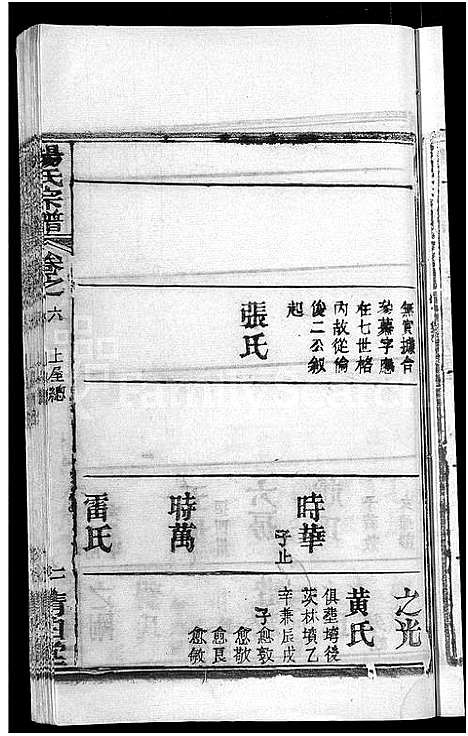 楊氏宗譜
卷之六
上屋總
清白堂
無實據合
在七世格
內故從倫
後二公敘
起
張氏
時華
子止
時萬
雷氏
之光
黃氏
俱塟塝後
茨林墳乙
辛兼辰戌
子愈敦
愈敬
愈良
愈敏